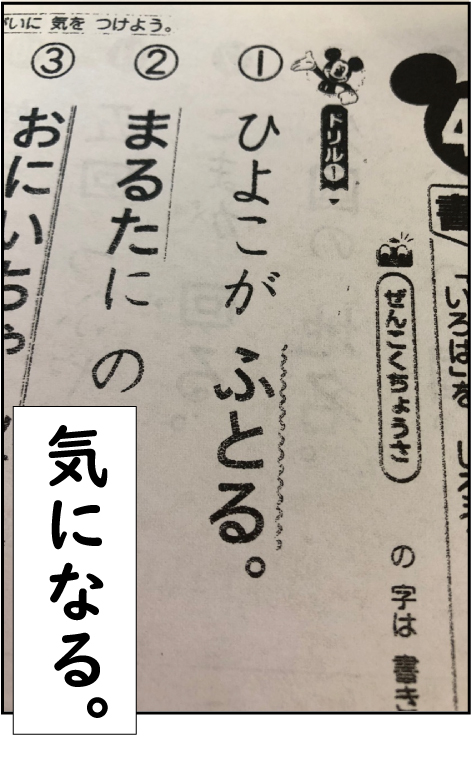 いに 気を つけよう。
4
書
ぜんこくちょうさ
の 字は 書き
ドリル①
① ひよこが ふとる。
② まるたに の
③ おにいちゃ
気になる。